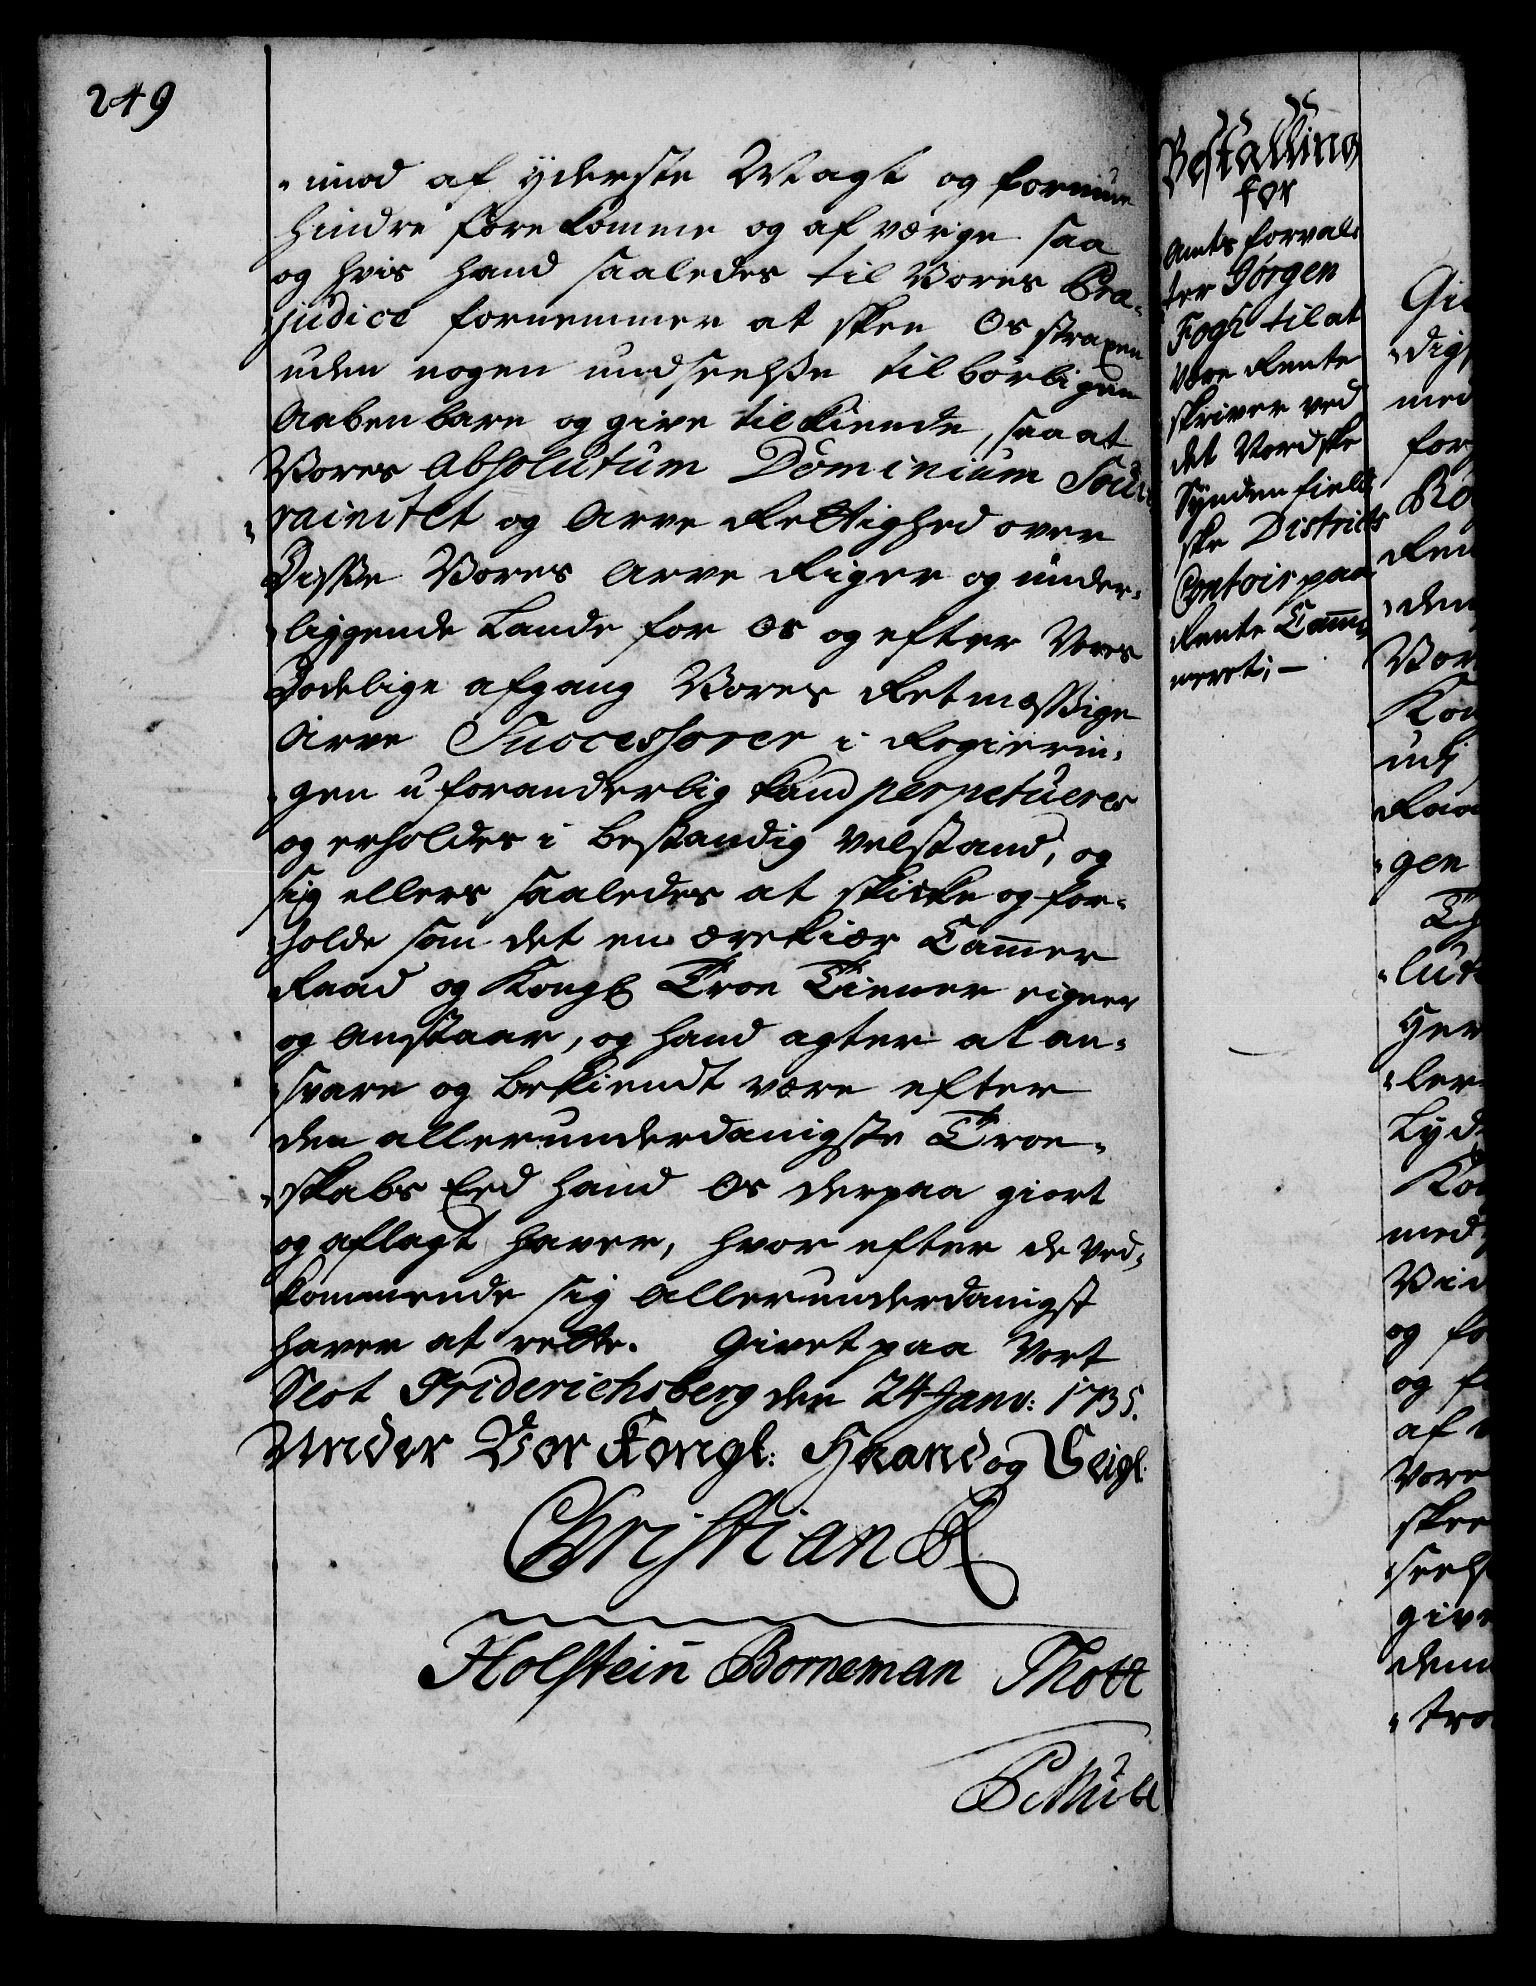 249
imod af yderste Magt og formue
hindre forekomme og afværge saa
og hvis hand saaledes til Vores Præ-
judice fornemmer at skee Os straxen
uden nogen undseelsse tilbørligen
Aabenbare og give tilkiende, saa at
Vores Absolutum Dominium Souve-
rainitet og Arve Rettighed over
Disse Vores Arve Riger og under-
liggende Lande for Os og efter Vores
Dødelige afgang Vores Retmæssige
Arve Successorer i Regierin-
gen uforanderlig kand perpetueres
og erholdes i bestandig Velstand, og
sig ellers saaledes at skicke og for-
holde som det en ærekiær Cammer
Raad og Kongl Troe Tiener eigner
og anstaar, og hand agter at an-
svare og bekiendt være efter
den allerunderdanigste Troe-
skabs Eed hand Os derpaa giort
og aflagt haver, hvor efter de ved-
kommende sig allerunderdanigst
haver at rette. Givet paa Vort
Slot Friderichsberg den 24 Janv: 1735.
Under Vor Kongl: Haand og Seigl.
Christian R
Holstein Borneman Thott
Bestalling
for
Amtsforval-
ter Jørgen
Fogh til at
være Rente
skriver ved
det Nordske
Syndenfield
ske Districts
Contoir paa
Rente Camme
meret; –
Gi
dig
med
for
Ro
Ren
den
Vor
Kon
udj
Raa
gen
Th
lut
Her
ler
Lyd
Kon
med
Vid
og fo
og f
af
Vore
skee
seels
give
dem
tro